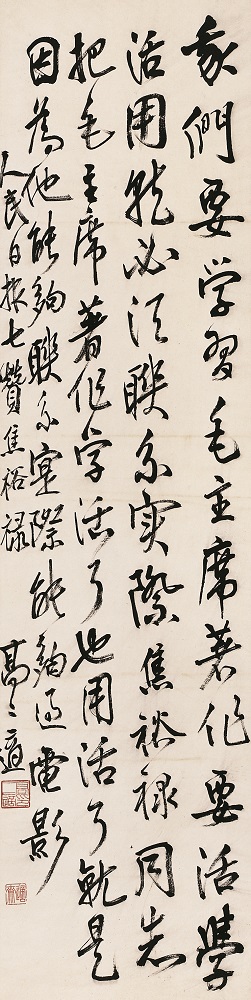 我們要学習毛主席著作要活學
活用就必須聯系实際焦裕禄同志
把毛主席著作学活了也用活了就是
因為他能夠聯系寔際能夠過電影
人民日报七贊焦裕禄
高二適